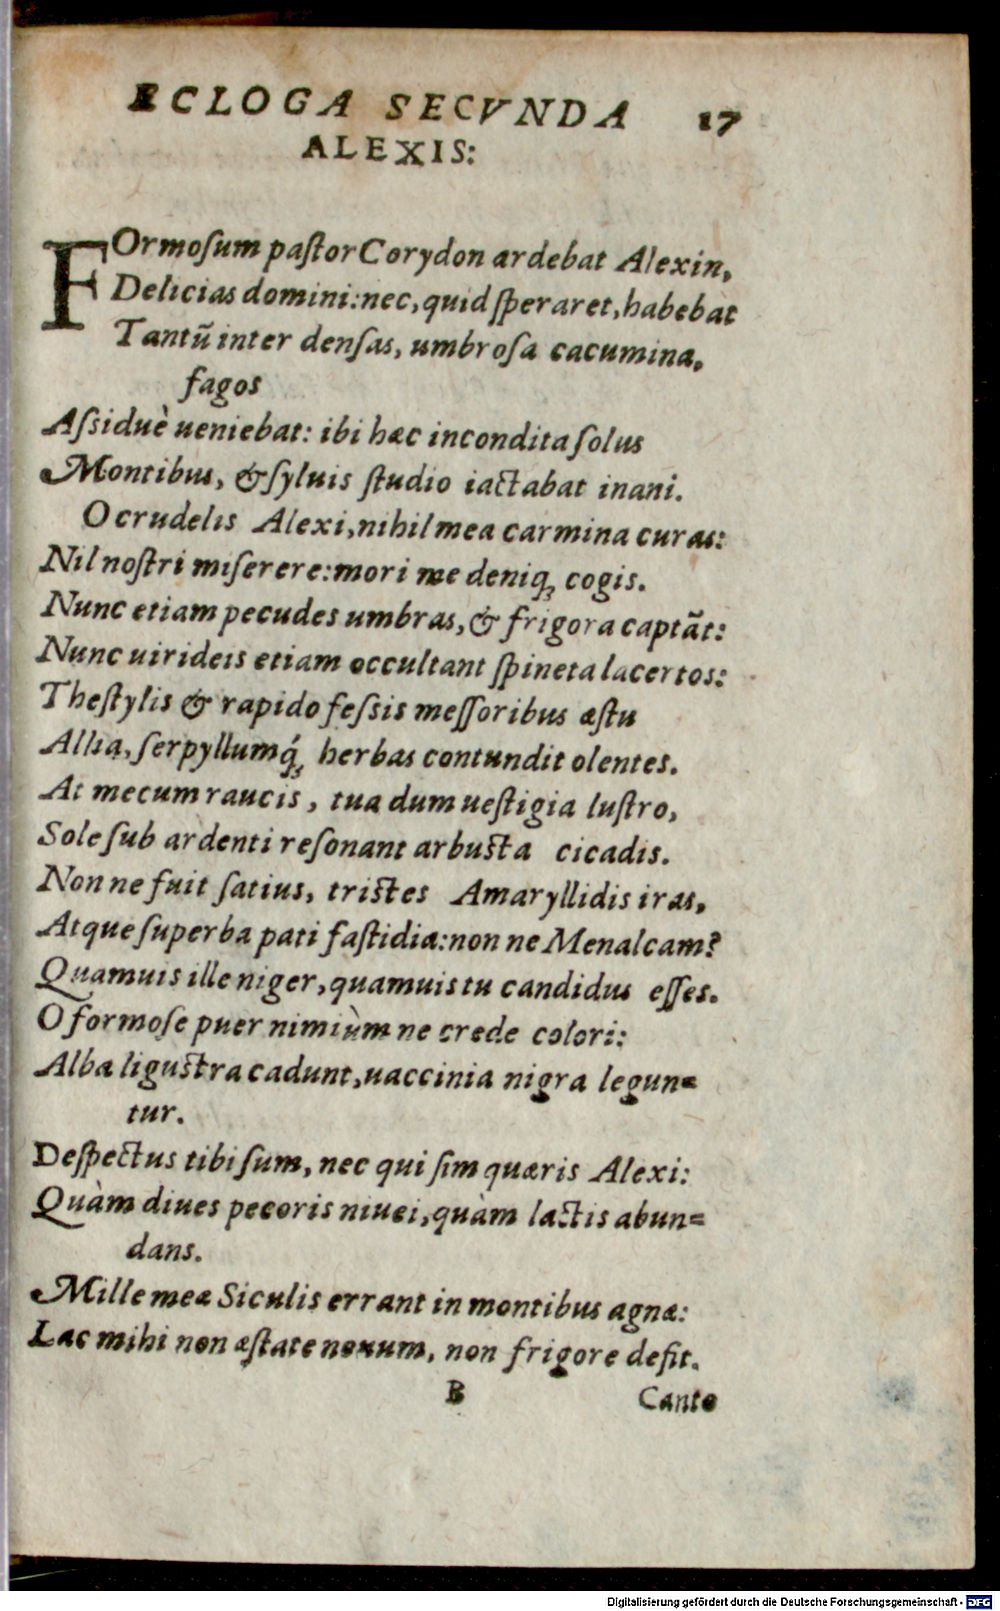 ECLOGA SECVNDA 17
ALEXIS:
FOrmoſum paſtor Corydon ardebat Alexin,
Delicias domini: nec, quid ſperaret, habebat
Tantũ inter denſas, umbroſa cacumina,
fagos
Aſsiduè ueniebat: ibi hæc incondita ſolus
Montibus, & ſyluis ſtudio iactabat inani.
O crudelis Alexi, nihil mea carmina curas:
Nil noſtri miſerere: mori me deniq; cogis.
Nunc etiam pecudes umbras, & frigora captãt:
Nunc uirideis etiam occultant ſpineta lacertos:
Theſtylis & rapido feſsis meſſoribus æſtu
Allia, ſerpyllumq́; herbas contundit olentes.
At mecum raucis, tua dum ueſtigia luſtro,
Sole ſub ardenti reſonant arbusta cicadis.
Non ne fuit ſatius, tristes Amaryllidis iras,
Atque ſuperba pati faſtidia: non ne Menalcam?
Quamuis ille niger, quamuis tu candidus eſſes.
O formoſe puer nimiùm ne crede colori:
Alba liguſtra cadunt, uaccinia nigra legun=
tur.
Deſpectus tibi ſum, nec qui ſim quæris Alexi:
Quàm diues pecoris niuei, quàm lactis abun=
dans.
Mille meæ Siculis errant in montibus agnæ:
Lac mihi non æſtate nouum, non frigore defit.
B Canto
Digitalisierung gefördert durch die Deutsche Forschungsgemeinschaft - DFG